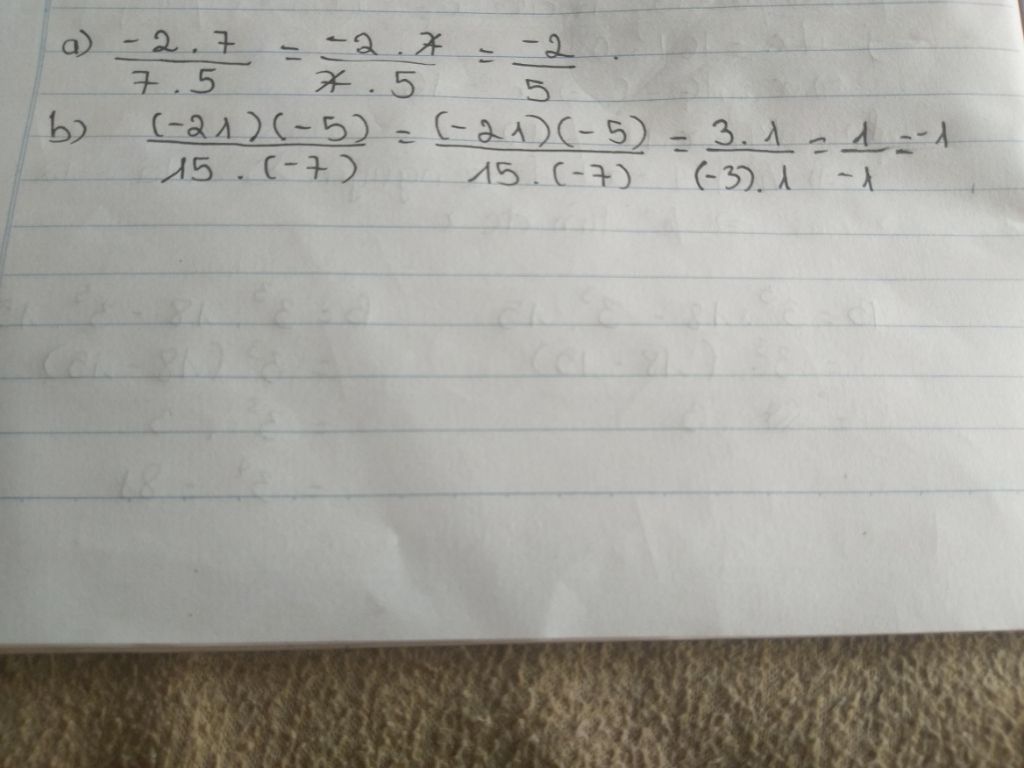 a) -2.7/7.5 = -2.7/7.5 = -2/5.
b) (-21)(-5)/15.(-7) = (-21)(-5)/15.(-7) = 3.1/(-3).1 = 1/-1 = -1